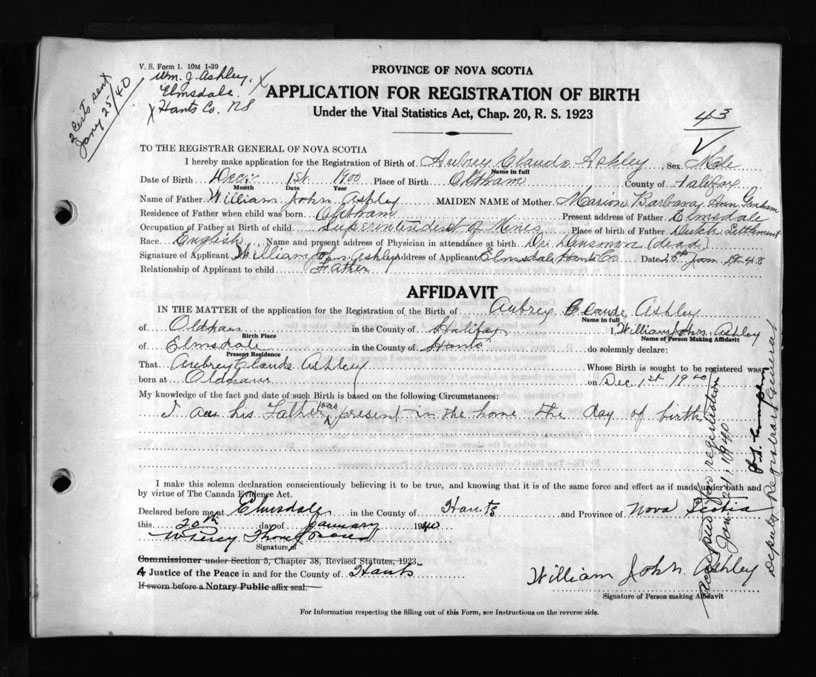 V. S. Form 1. 10M 1-39
Wm. J. Ashley. X
Elmsdale.
X Hants Co. NS
2 certs sent
Jany 25/40
PROVINCE OF NOVA SCOTIA
APPLICATION FOR REGISTRATION OF BIRTH
Under the Vital Statistics Act, Chap. 20, R. S. 1923
43
TO THE REGISTRAR GENERAL OF NOVA SCOTIA
I hereby make application for the Registration of Birth of Aubrey Claude Ashley Sex Male
Name in full
Date of Birth Dec. 1st. 1900 Place of Birth Oldham County of Halifax
Month Date Year
Name of Father William John Ashley MAIDEN NAME of Mother Marion Barbara Ann Graham
Residence of Father when child was born. Oldham Present address of Father Elmsdale
Occupation of Father at Birth of child Superintendent of Mines Place of birth of Father Dutch Settlement
Race. English Name and present address of Physician in attendance at birth Dr. (dead)
Signature of Applicant William John Ashley Address of Applicant Elmsdale Hants Co Dated Jan
Relationship of Applicant to child Father
AFFIDAVIT
IN THE MATTER of the application for the Registration of the Birth of Aubrey Claude Ashley
Name in full
of Oldham in the County of Halifax I, William John. Ashley
Birth Place Name of Person Making Affidavit
of Elmsdale in the County of Hants do solemnly declare:
Present Residence
That Aubrey Claude Ashley Whose Birth is sought to be registered was
born at Oldham on Dec 1st 19
My knowledge of the fact and date of such Birth is based on the following Circumstances:
I am his Father was present in the home the day of birth
I make this solemn declaration conscientiously believing it to be true, and knowing that it is of the same force and effect as if made under oath and
by virtue of The Canada Evidence Act.
Declared before me at Elmsdale in the County of Hants and Province of Nova Scotia
this 20th day of January 1940
Signature
Commissioner under Section 5, Chapter 38, Revised Statutes, 1923.
A Justice of the Peace in and for the County of Hants
If sworn before a Notary Public affix seal.
William John. Ashley
Signature of Person making Affidavit
For Information respecting the filling out of this Form, see Instructions on the reverse side.
Accepted for registration
Jany 24 1940
Deputy Registrar General